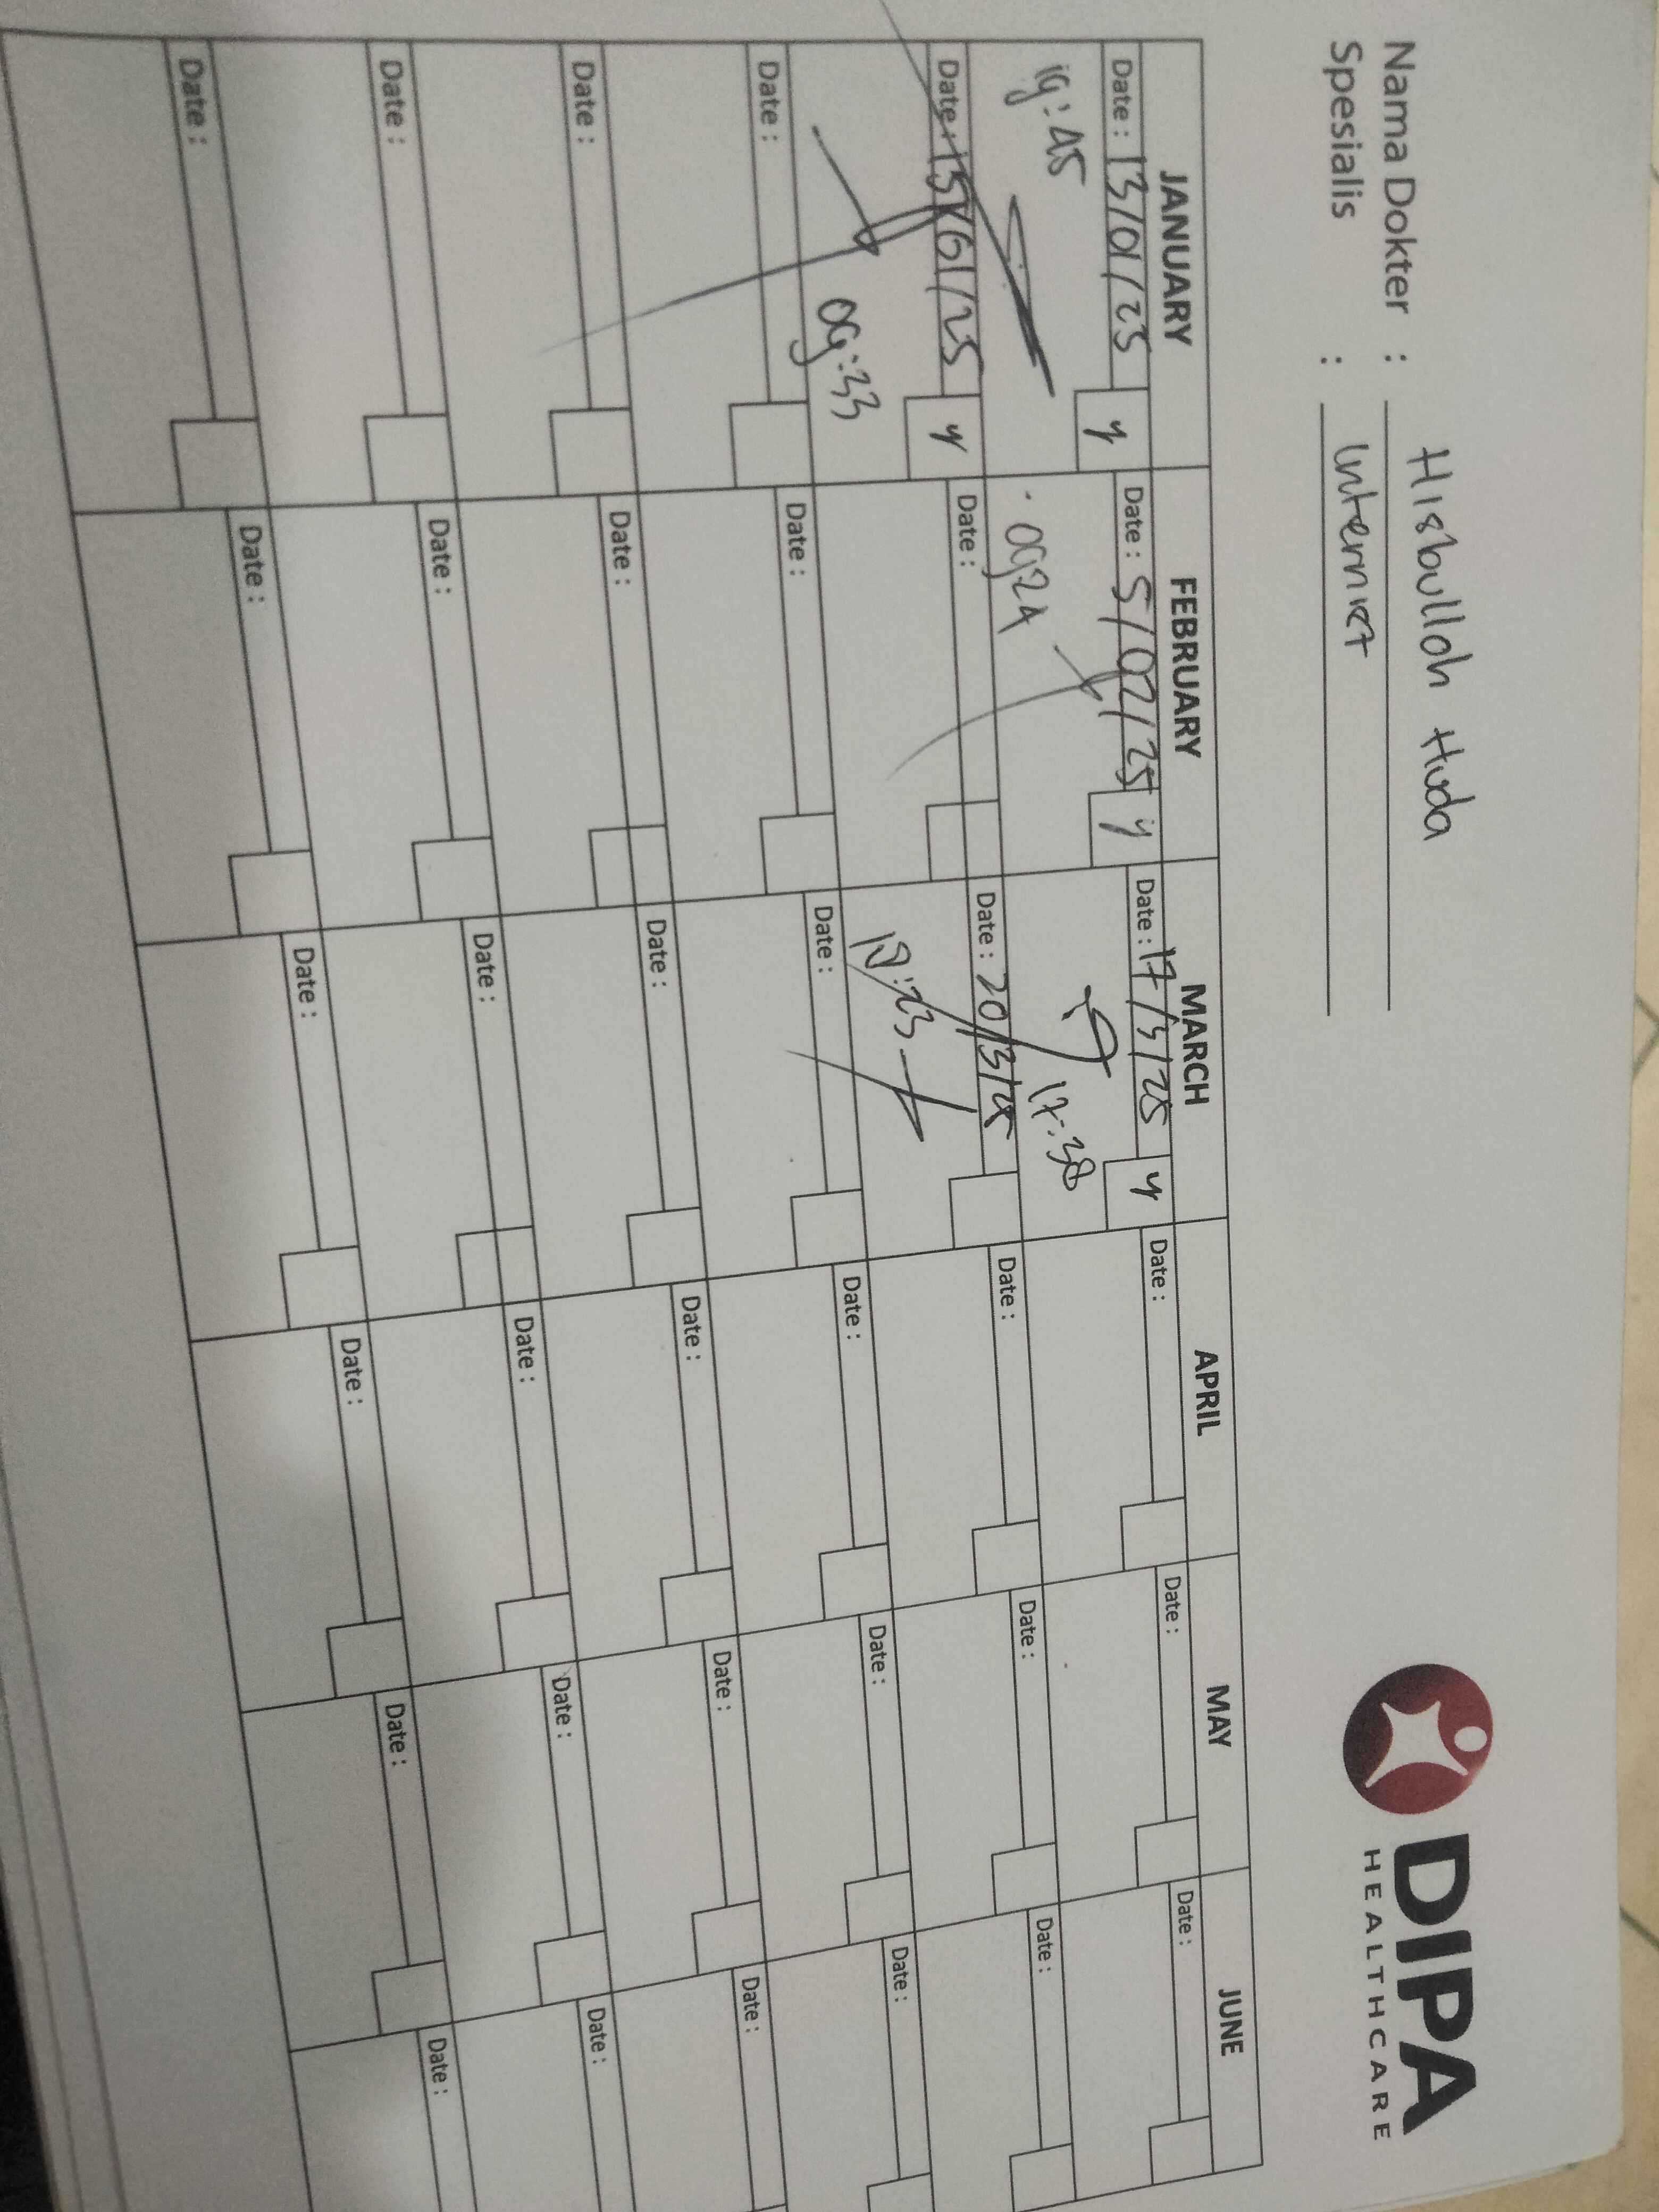 DIPA
HEALTHCARE
Nama Dokter : Hisbulloh Huda
Spesialis : Internist
JANUARY FEBRUARY MARCH APRIL MAY JUNE
Date : 13/01/25 y Date : 5/02/25 y Date : 17/3/25 y Date : Date : Date :
19:45 09:24 17:38
Date : 15/01/25 y Date : Date : 20/3/25 Date : Date : Date :
09:33 19:23
Date : Date : Date : Date : Date : Date :
Date : Date : Date : Date : Date : Date :
Date : Date : Date : Date : Date : Date :
Date : Date : Date : Date : Date : Date :